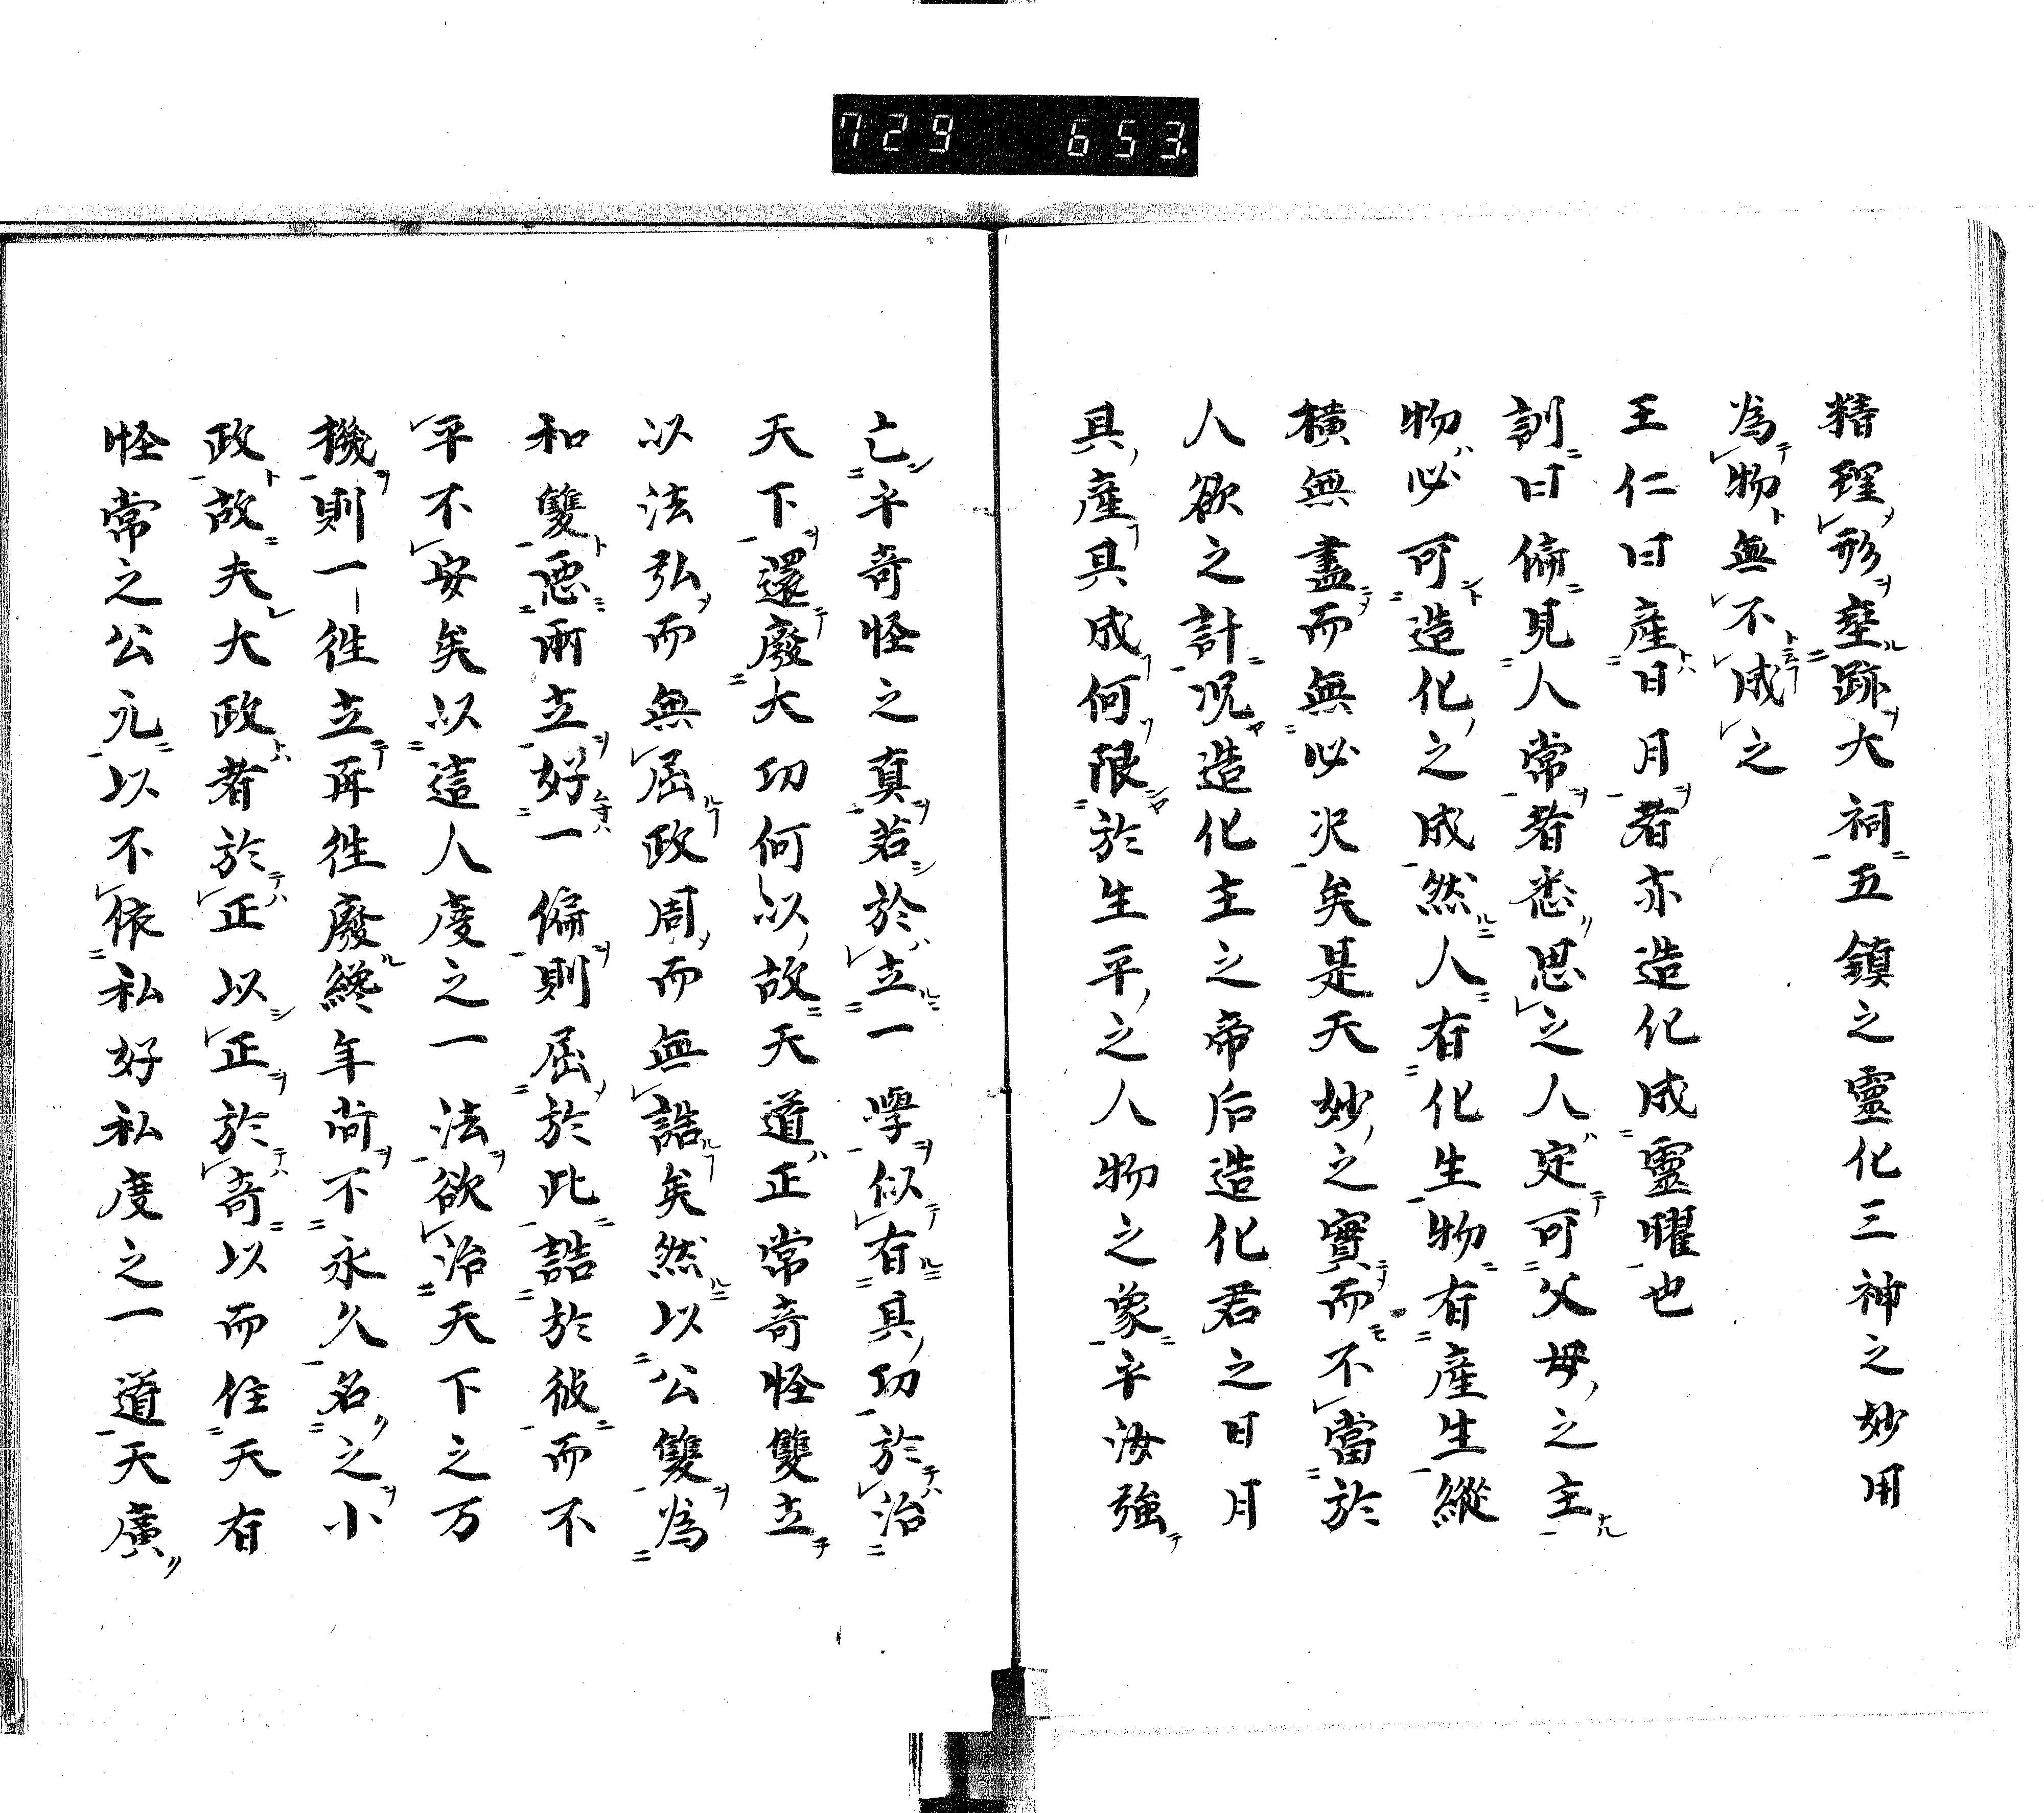 729 653
精理形墍跡大祠五鎮之靈化三神之妙用
為物無不成之
王仁曰産日月者亦造化成靈曜也
訓曰偏見人常者悉思之人定可父母之主
物必可造化之成然人有化生物有産生縱
横無盡而無必次矣是天妙之實而不當於
人欲之計况造化主之帝后造化君之日月
具産具成何限於生平之人物之象乎汝強
亡乎奇怪之真若於立一學似有具功於治
天下還廢大功何以故天道正常奇怪雙立
以法弘而無屈政周而無誥矣然以公雙為
和雙悪兩立好一偏則屈於此誥於彼而不
平不安矣以這人度之一法欲治天下之万
機則一往立再往廢纔年尚不永久名之小
政故夫大政者於正以正於奇以而任天有
怪常之公元以不依私好私度之一道天廣